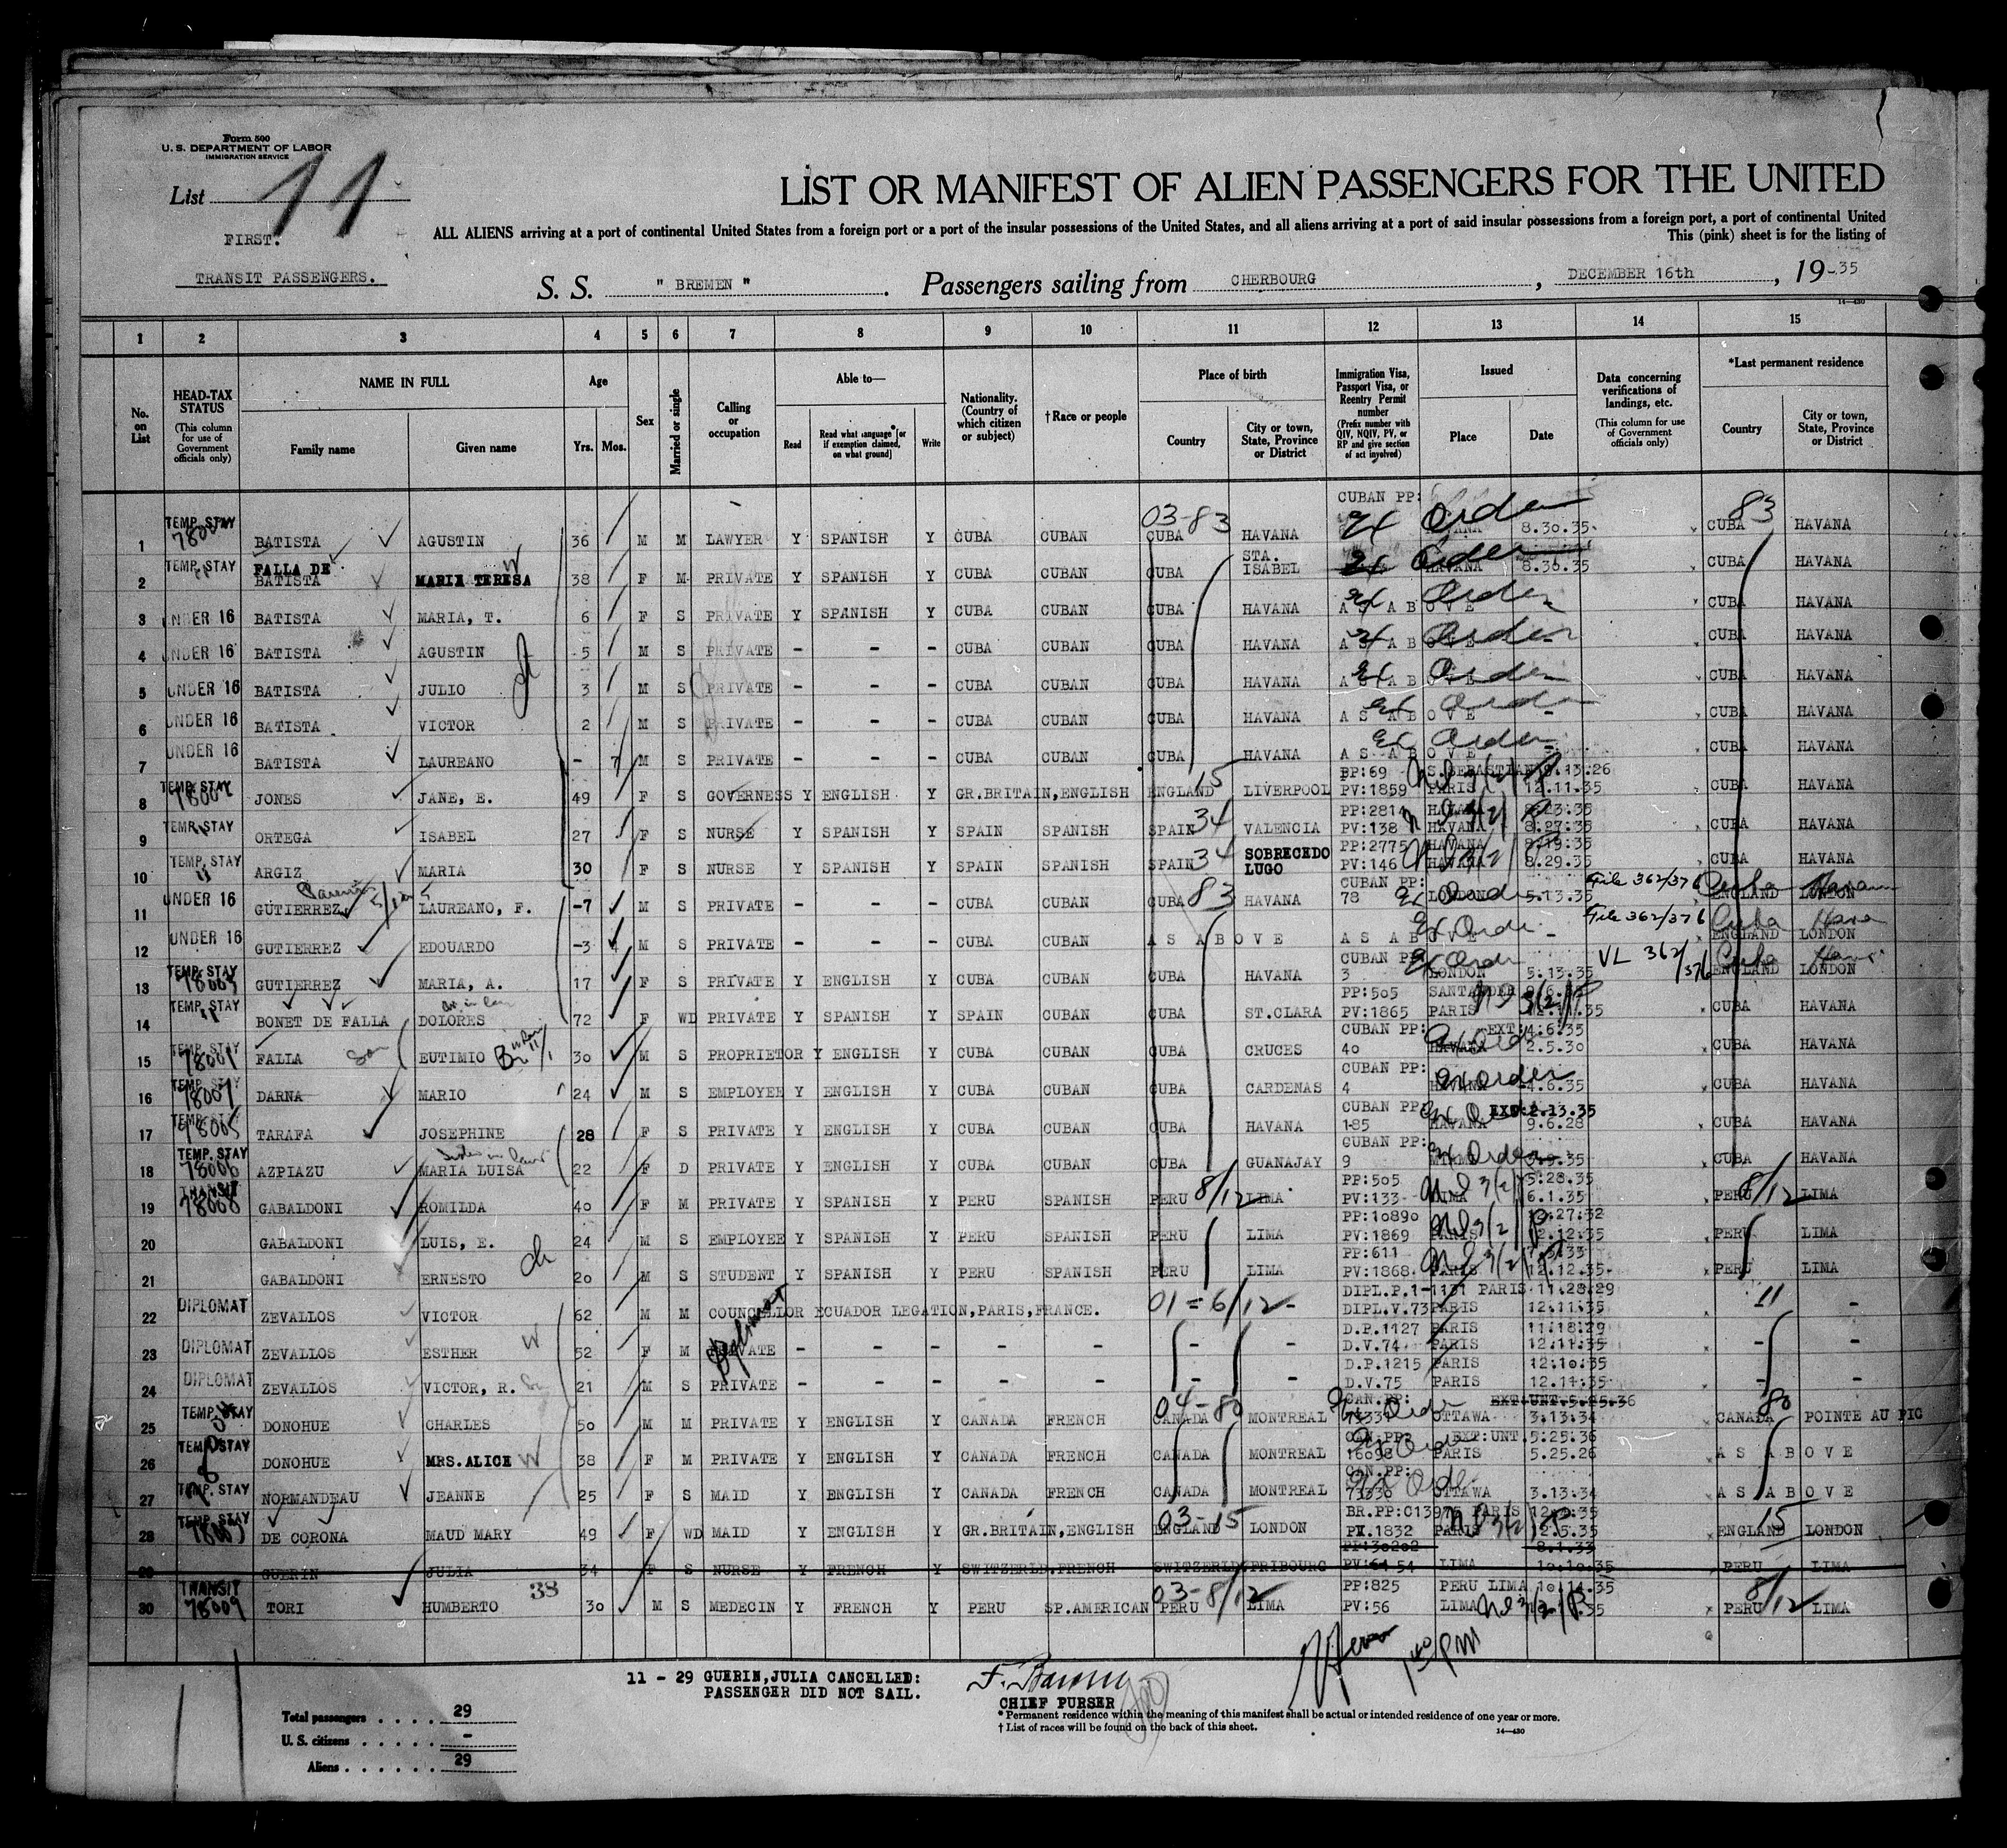 Form 500
U. S. DEPARTMENT OF LABOR
IMMIGRATION SERVICE
List 11
FIRST.
TRANSIT PASSENGERS.
LIST OR MANIFEST OF ALIEN PASSENGERS FOR THE UNITED
ALL ALIENS arriving at a port of continental United States from a foreign port or a port of the insular possessions of the United States, and all aliens arriving at a port of said insular possessions from a foreign port, a port of continental United
This (pink) sheet is for the listing of
S. S. " BREMEN " . Passengers sailing from CHERBOURG , DECEMBER 16th , 19 35
14—430
1 2 3 4 5 6 7 8 9 10 11 12 13 14 15
No. on List
HEAD-TAX STATUS (This column for use of Government officials only)
NAME IN FULL Family name Given name
Age Yrs. Mos.
Sex
Married or single
Calling or occupation
Able to— Read Read what language [or if exemption claimed, on what ground] Write
Nationality. (Country of which citizen or subject)
†Race or people
Place of birth Country City or town, State, Province or District
Immigration Visa, Passport Visa, or Reentry Permit number (Prefix number with QIV, NQIV, PV, or RP and give section of act involved)
Issued Place Date
Data concerning verifications of landings, etc. (This column for use of Government officials only)
*Last permanent residence Country City or town, State, Province or District
CUBAN PP: 03-83 83
1 TEMP. STAY BATISTA AGUSTIN 36 M M LAWYER Y SPANISH Y CUBA CUBAN CUBA HAVANA Ex Order 8.30.35 CUBA HAVANA
2 TEMP. STAY FALLA DE BATISTA MARIE TERESA W 38 F M PRIVATE Y SPANISH Y CUBA CUBAN CUBA STA. ISABEL Ex Order HAVANA 8.30.35 CUBA HAVANA
3 UNDER 16 BATISTA MARIA, T. 6 F S PRIVATE Y SPANISH Y CUBA CUBAN CUBA HAVANA AS ABOVE Ex Order CUBA HAVANA
4 UNDER 16 BATISTA AGUSTIN 5 M S PRIVATE - - - CUBA CUBAN CUBA HAVANA AS ABOVE Ex Order CUBA HAVANA
5 UNDER 16 BATISTA JULIO 3 M S PRIVATE - - - CUBA CUBAN CUBA HAVANA AS ABOVE Ex Order CUBA HAVANA
6 UNDER 16 BATISTA VICTOR 2 M S PRIVATE - - - CUBA CUBAN CUBA HAVANA AS ABOVE Ex Order - CUBA HAVANA
7 UNDER 16 BATISTA LAUREANO - 7 M S PRIVATE - - - CUBA CUBAN CUBA HAVANA AS ABOVE Ex Order CUBA HAVANA
BP:69 S.SEBASTIAN 8.13.26
8 TEMP. STAY JONES JANE, E. 49 F S GOVERNESS Y ENGLISH Y GR.BRITAIN,ENGLISH ENGLAND 15 LIVERPOOL PV:1859 PARIS 12.11.35 CUBA HAVANA
PP:2814 HAVANA
9 TEMP. STAY ORTEGA ISABEL 27 F S NURSE Y SPANISH Y SPAIN SPANISH SPAIN 34 VALENCIA PV:138 HAVANA 8.27.35 CUBA HAVANA
PP:2775 HAVANA 8.19.35
10 TEMP. STAY ARGIZ MARIA 30 F S NURSE Y SPANISH Y SPAIN SPANISH SPAIN 34 SOBRECEDO LUGO PV:146 HAVANA 8.29.35 CUBA HAVANA
CUBAN PP:
11 UNDER 16 GUTIERREZ LAUREANO, F. -7 M S PRIVATE - - - CUBA CUBAN CUBA 83 HAVANA 78 Ex Order LONDON 5.13.35 File 362/376 ENGLAND LONDON Cuba Havana
12 UNDER 16 GUTIERREZ EDOUARDO -3 M S PRIVATE - - - CUBA CUBAN AS ABOVE AS ABOVE Ex Order - File 362/376 ENGLAND LONDON Cuba Hava
CUBAN PP:
13 TEMP. STAY 78003 GUTIERREZ MARIA, A. 17 F S PRIVATE Y ENGLISH Y CUBA CUBAN CUBA HAVANA 3 Ex Order LONDON 5.13.35 VL 362/376 ENGLAND LONDON Cuba
PP:505 SANTANDER
14 TEMP. STAY BONET DE FALLA DOLORES 72 F WD PRIVATE Y SPANISH Y SPAIN CUBAN CUBA ST.CLARA PV:1865 PARIS CUBA HAVANA
CUBAN PP: EXT:4.6.35
15 TEMP. STAY FALLA Son EUTIMIO 30 M S PROPRIETOR Y ENGLISH Y CUBA CUBAN CUBA CRUCES 40 HAVANA 2.5.30 CUBA HAVANA
CUBAN PP:
16 TEMP. STAY 78007 DARNA MARIO 24 M S EMPLOYEE Y ENGLISH Y CUBA CUBAN CUBA CARDENAS 4 Ex Order HAVANA 4.6.35 CUBA HAVANA
CUBAN PP: EXT:2.13.35
17 TEMP. STAY 78005 TARAFA JOSEPHINE 28 F S PRIVATE Y ENGLISH Y CUBA CUBAN CUBA HAVANA 185 HAVANA 9.6.28 CUBA HAVANA
CUBAN PP:
18 TEMP. STAY 78006 AZPIAZU MARIA LUISA 22 F D PRIVATE Y ENGLISH Y CUBA CUBAN CUBA GUANAJAY 9 Ex Order CUBA HAVANA
PP:505 5.28.35
19 TRANSIT 78008 GABALDONI ROMILDA 40 F M PRIVATE Y SPANISH Y PERU SPANISH PERU 8/12 LIMA PV:133 LIMA 6.1.35 PERU 8/12 LIMA
PP:10890
20 GABALDONI LUIS, E. 24 M S EMPLOYEE Y SPANISH Y PERU SPANISH PERU LIMA PV:1869 PARIS 12.12.35 PERU LIMA
PP:611
21 GABALDONI ERNESTO ch 20 M S STUDENT Y SPANISH Y PERU SPANISH PERU LIMA PV:1868 PARIS 12.12.35 PERU LIMA
DIPL.P.1-1131 PARIS 11.28.29
22 DIPLOMAT ZEVALLOS VICTOR 62 M M COUNCELLOR ECUADOR LEGATION,PARIS,FRANCE. 01=6/12- DIPL.V.73 PARIS 12.11.35 11 -
D.P.1127 PARIS 11.18.29
23 DIPLOMAT ZEVALLOS ESTHER W 52 F M PRIVATE - - - - - - - D.V.74 PARIS 12.11.35 - -
D.P.1215 PARIS 12.10.35
24 DIPLOMAT ZEVALLOS VICTOR, R. 21 M S PRIVATE - - - - - - - D.V.75 PARIS 12.11.35 - -
CAN.PP: EXT:UNT.5.25.36
25 TEMP. STAY DONOHUE CHARLES 50 M M PRIVATE Y ENGLISH Y CANADA FRENCH CANADA 04-80 MONTREAL 73331 OTTAWA 3.13.34 CANADA 80 POINTE AU PIC
CAN.PP: EXT:UNT.5.25.36
26 TEMP. STAY DONOHUE MRS.ALICE W 38 F M PRIVATE Y ENGLISH Y CANADA FRENCH CANADA MONTREAL 16098 PARIS 5.25.26 AS ABOVE
CAN.PP:
27 TEMP. STAY NORMANDEAU JEANNE 25 F S MAID Y ENGLISH Y CANADA FRENCH CANADA MONTREAL 73330 OTTAWA 3.13.34 AS ABOVE
BR.PP:C13975 PARIS
28 TEMP. STAY DE CORONA MAUD MARY 49 F WD MAID Y ENGLISH Y GR.BRITAIN,ENGLISH ENGLAND 03-15 LONDON PV.1832 PARIS 12.5.35 ENGLAND 15 LONDON
PP:30202 8.1.33
29 GUERIN JULIA 34 F S NURSE Y FRENCH Y SWITZERLD.FRENCH SWITZERLD.FRIBOURG PV:54 LIMA 10.10.35 PERU LIMA
PP:825 PERU LIMA 10.14.35
30 TRANSIT 78009 TORI HUMBERTO 38 30 M S MEDECIN Y FRENCH Y PERU SP.AMERICAN PERU 03-8/12 LIMA PV:56 LIMA PERU 8/12 LIMA
11 - 29 GUERIN,JULIA CANCELLED:
PASSENGER DID NOT SAIL.
CHIEF PURSER
Total passengers . . . . 29
U. S. citizens . . . . . -
Aliens . . . . . . 29
* Permanent residence within the meaning of this manifest shall be actual or intended residence of one year or more.
† List of races will be found on the back of this sheet.
14—430